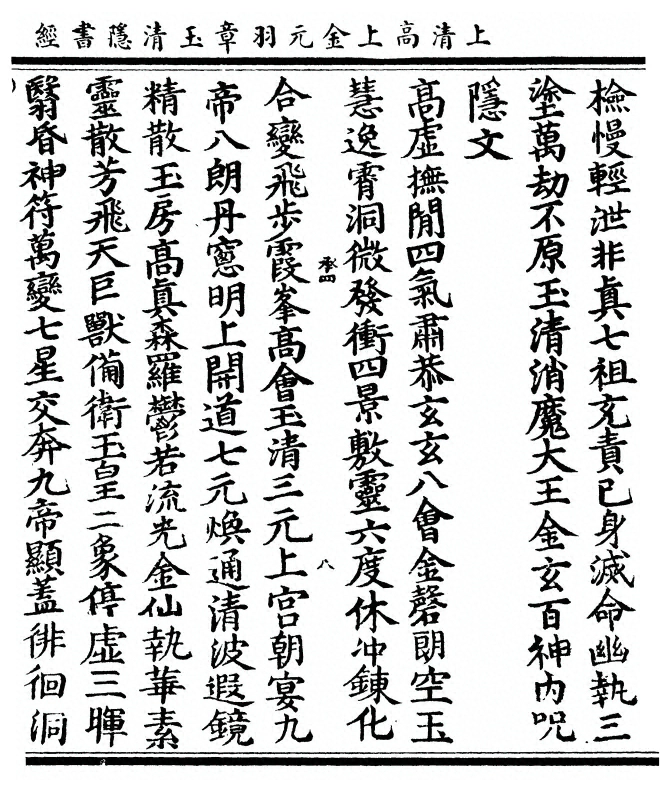 上清高上金元羽章玉清隱書經
檢慢輕泄非眞七祖充責己身滅命幽執三
塗萬劫不原玉清消魔大王金玄百神內呪
隱文
高虛撫閒四氣肅恭玄玄八會金磬朗空玉
慧逸霄洞微發衝四景敷靈六度休冲鍊化
承四
八
合變飛步霞峯高會玉清三元上宮朝宴九
帝八朗丹窓明上開道七元煥通清波遐鏡
精散玉房高眞森羅鬱若流光金仙執華素
靈散芳飛天巨獸備衛玉皇二象停虛三暉
翳昏神符萬變七星交奔九帝顯蓋徘徊洞